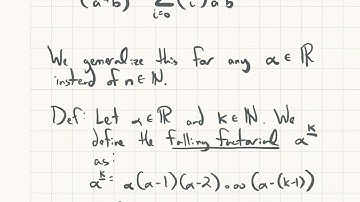 (a+b) = Σ i=0 (i) a b
We generalize this for any α ∈ ℝ
instead of n ∈ ℕ.
Def: Let α ∈ ℝ and k ∈ ℕ. We
define the falling factorial α^k̲
as:
α^k̲ = α(α-1)(α-2)...(α-(k-1))